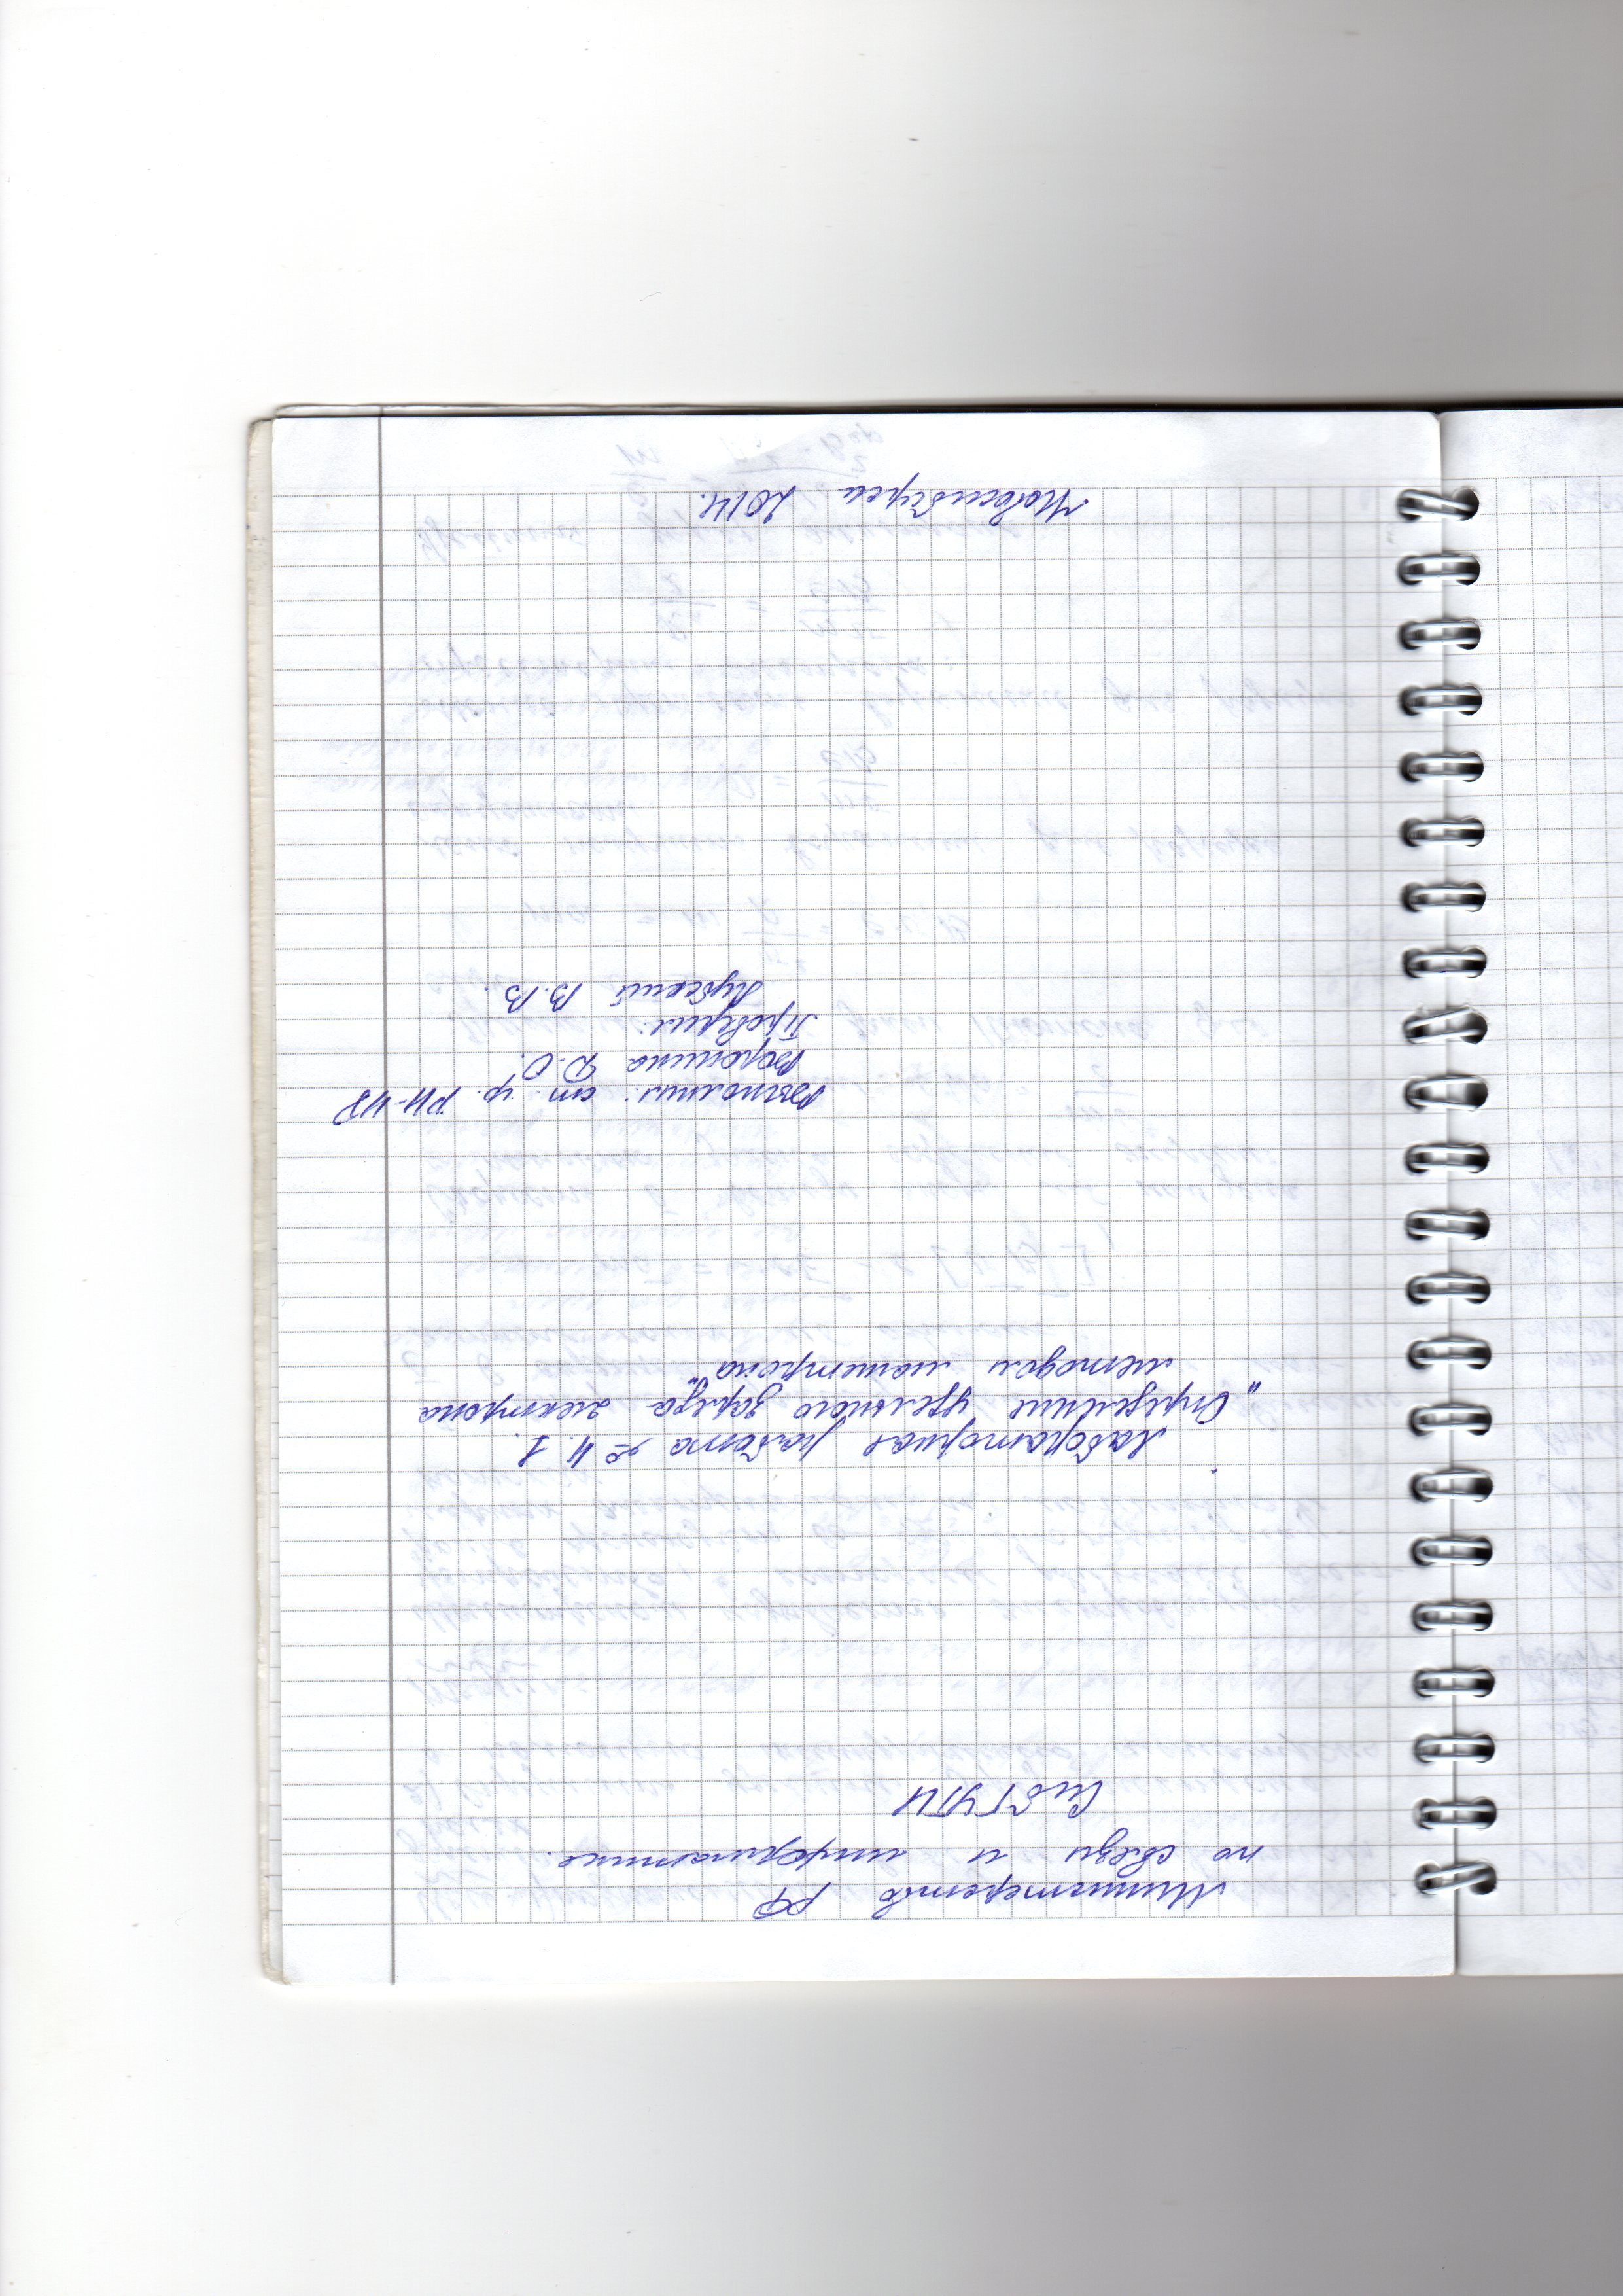 Министерство РФ
по связи и информатике.
СибГУТИ
Лабораторная работа № 4.1.
„Определение удельного заряда электрона
методом магнетрона“
Выполнил: ст. гр.
Воронина Д.О.
Проверил:
В.В.
Новосибирск 2014.